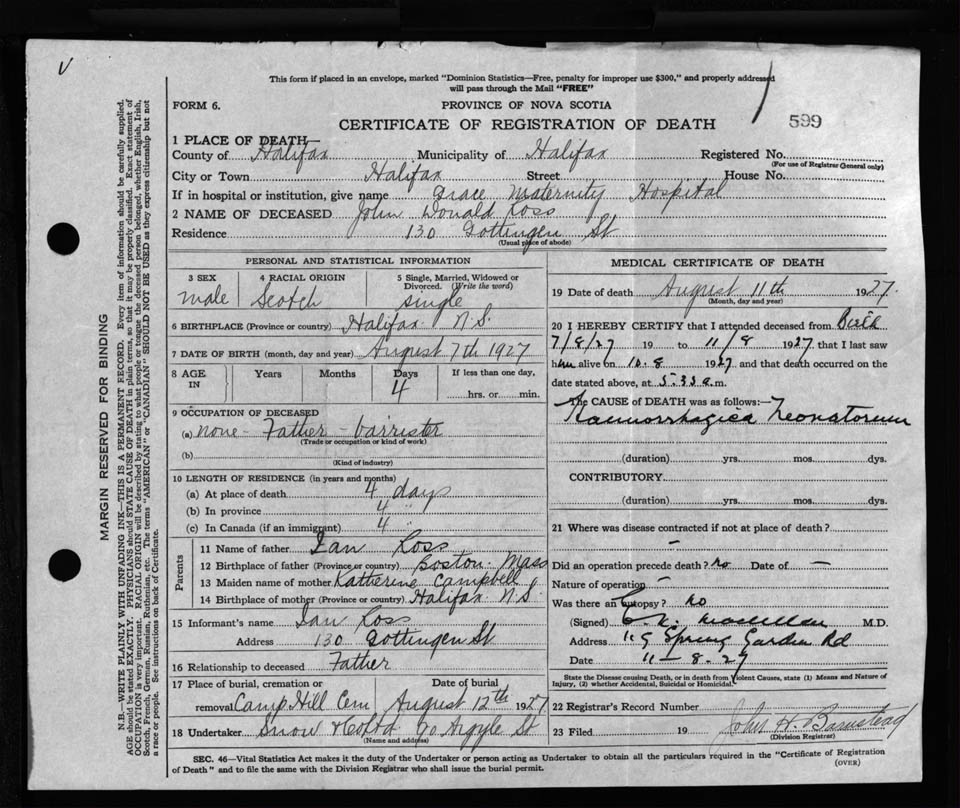 This form if placed in an envelope, marked "Dominion Statistics—Free, penalty for improper use $300," and properly addressed
will pass through the Mail "FREE"
FORM 6.
PROVINCE OF NOVA SCOTIA
CERTIFICATE OF REGISTRATION OF DEATH
599
1 PLACE OF DEATH—
County of Halifax Municipality of Halifax Registered No.
(For use of Registrar General only)
City or Town Halifax Street House No.
If in hospital or institution, give name Grace Maternity Hospital
2 NAME OF DECEASED John Donald Ross
Residence 130 Gottingen St
(Usual place of abode)
PERSONAL AND STATISTICAL INFORMATION
3 SEX male
4 RACIAL ORIGIN Scotch
5 Single, Married, Widowed or Divorced. (Write the word) single
6 BIRTHPLACE (Province or country) Halifax N.S.
7 DATE OF BIRTH (month, day and year) August 7th 1927
8 AGE IN Years Months Days 4 If less than one day, hrs. or min.
9 OCCUPATION OF DECEASED
(a) none - Father - barrister
(Trade or occupation or kind of work)
(b)
(Kind of industry)
10 LENGTH OF RESIDENCE (in years and months)
(a) At place of death 4 days
(b) In province 4 "
(c) In Canada (if an immigrant) 4 "
Parents
11 Name of father Ian Ross
12 Birthplace of father (Province or country) Boston Mass
13 Maiden name of mother Katherine Campbell
14 Birthplace of mother (Province or country) Halifax N.S.
15 Informant's name Ian Ross
Address 130 Gottingen St
16 Relationship to deceased Father
17 Place of burial, cremation or removal Camp Hill Cem Date of burial August 12th 1927
18 Undertaker Snow & Co Ltd 90 Argyle St
(Name and address)
MEDICAL CERTIFICATE OF DEATH
19 Date of death August 11th 1927.
(Month, day and year)
20 I HEREBY CERTIFY that I attended deceased from Birth
7/8/27 19 to 11/8 1927 that I last saw
him alive on 10.8 1927 and that death occurred on the
date stated above, at 5.33 a.m.
The CAUSE OF DEATH was as follows:—
Haemorrhagica Neonatorum
(duration) yrs. mos. dys.
CONTRIBUTORY.
(duration) yrs. mos. dys.
21 Where was disease contracted if not at place of death?
—
Did an operation precede death? no Date of —
Nature of operation —
Was there an autopsy? no
(Signed) M.D.
Address Spring Garden Rd
Date 11-8-27
State the Disease causing Death, or in death from Violent Causes, state (1) Means and Nature of
Injury, (2) whether Accidental, Suicidal or Homicidal.
22 Registrar's Record Number
23 Filed 19 John H. Barnstead
(Division Registrar)
SEC. 46—Vital Statistics Act makes it the duty of the Undertaker or Person acting as Undertaker to obtain all the particulars required in the "Certificate of Registration
of Death" and to file the same with the Division Registrar who shall issue the burial permit.
(OVER)
MARGIN RESERVED FOR BINDING
N.B.—WRITE PLAINLY WITH UNFADING INK—THIS IS A PERMANENT RECORD. Every item of information should be carefully supplied.
AGE should be stated EXACTLY. PHYSICIANS should STATE CAUSE OF DEATH in plain terms, so that it may be properly classified. Exact statement of
OCCUPATION is very important. RACIAL ORIGIN will be described by stating to what people or tongue the deceased person belonged, whether English, Irish,
Scotch, French, German, Russian, Ruthenian, etc. The terms "AMERICAN" or "CANADIAN" SHOULD NOT BE USED as they express citizenship but not
a race or people. See instructions on back of Certificate.